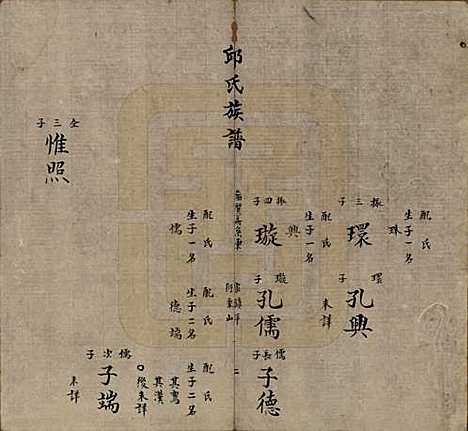 邱氏族譜
振三子
環
配氏
生子一名
珠
環子
孔興
未詳
振四子
璇
配氏
生子一名
興
璇子
孔儒
配氏
生子一名
儒
儒長子
子德
配氏
生子二名
德
端
配氏
生子二名
其鸞
其漢
後未詳
儒次子
子端
未詳
仝三子
惟照
二